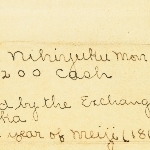 Nihinjuku Mon
200 Cash
d by the Exchang
year of Meiji (18